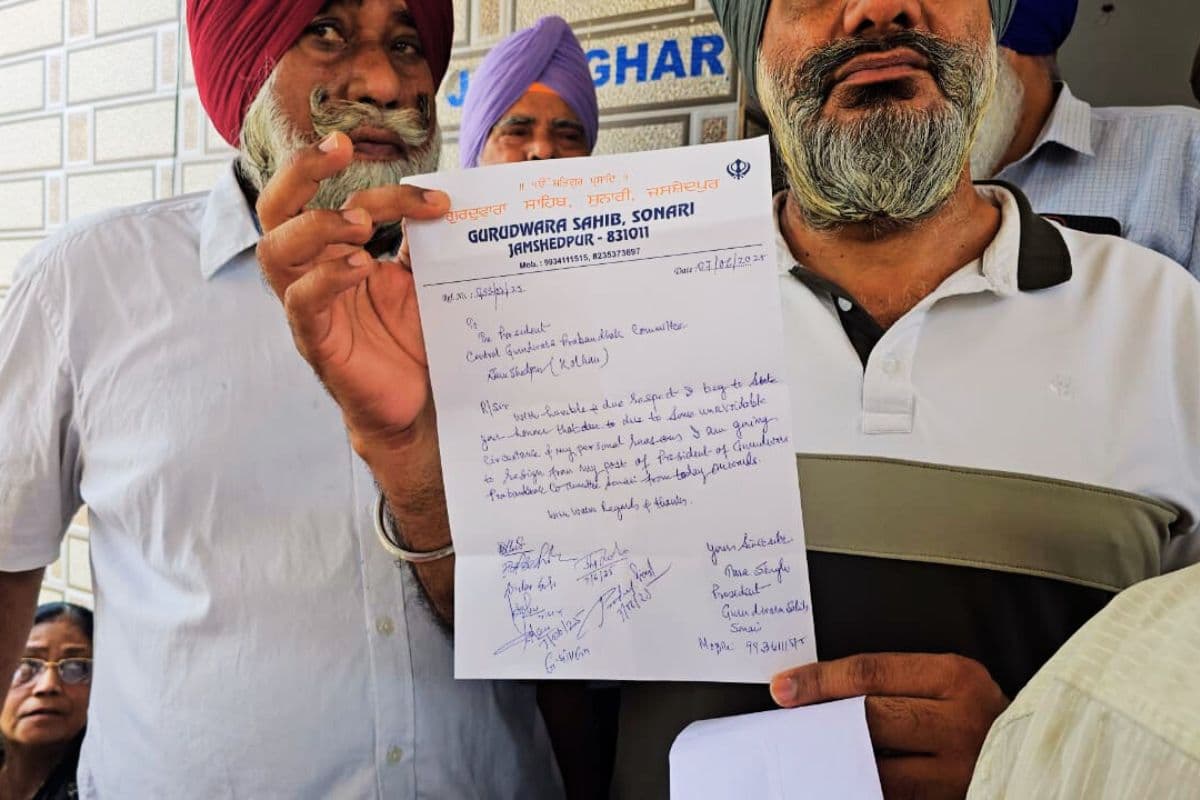 J GHAR
॥ ੴ ਸਤਿਗੁਰ ਪ੍ਰਸਾਦਿ ॥
ਗੁਰਦੁਵਾਰਾ ਸਾਹਿਬ, ਸੁਨਾਰੀ, ਜਮਸ਼ੇਦਪੁਰ
GURUDWARA SAHIB, SONARI
JAMSHEDPUR - 831011
Mob. : 9934111515, 8235373697
Ref. No. :
Date : 07/06/2025
To
The President
Central Gurudwara Prabandhak Committee
Jamshedpur (Kolhan)
R/Sir
With humble & due respect I beg to state
your honour that due to due to some unavoidable
circustance & my personal reasons I am going
to resign from my post of President of Gurudwara
Prabandhak Committee Sonari from today onwards.
With warm Regards & thanks.
Yours Sincerely
Tara Singh
President
Gurudwara Sahib
Sonari
Mobile: 9934111515
7/6/25
7/06/25
7/06/25